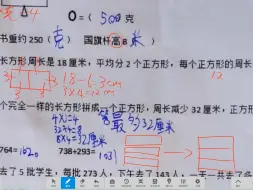 克 4
O=( 500克
书重约250(克) 国旗杆高8米
长方形周长是18厘米，平均分2个正方形，每个正方形的周长
18÷6=3cm
3×4=12cm
12
个完全一样的长方形拼成一个正方形，周长减少32厘米，正方形
4×2=8
32÷8=4
8×4=32厘米
答 32厘米
764=1020 738+293=1031
去了5批学生，每批273人，下午去了143人，一天一共去了多